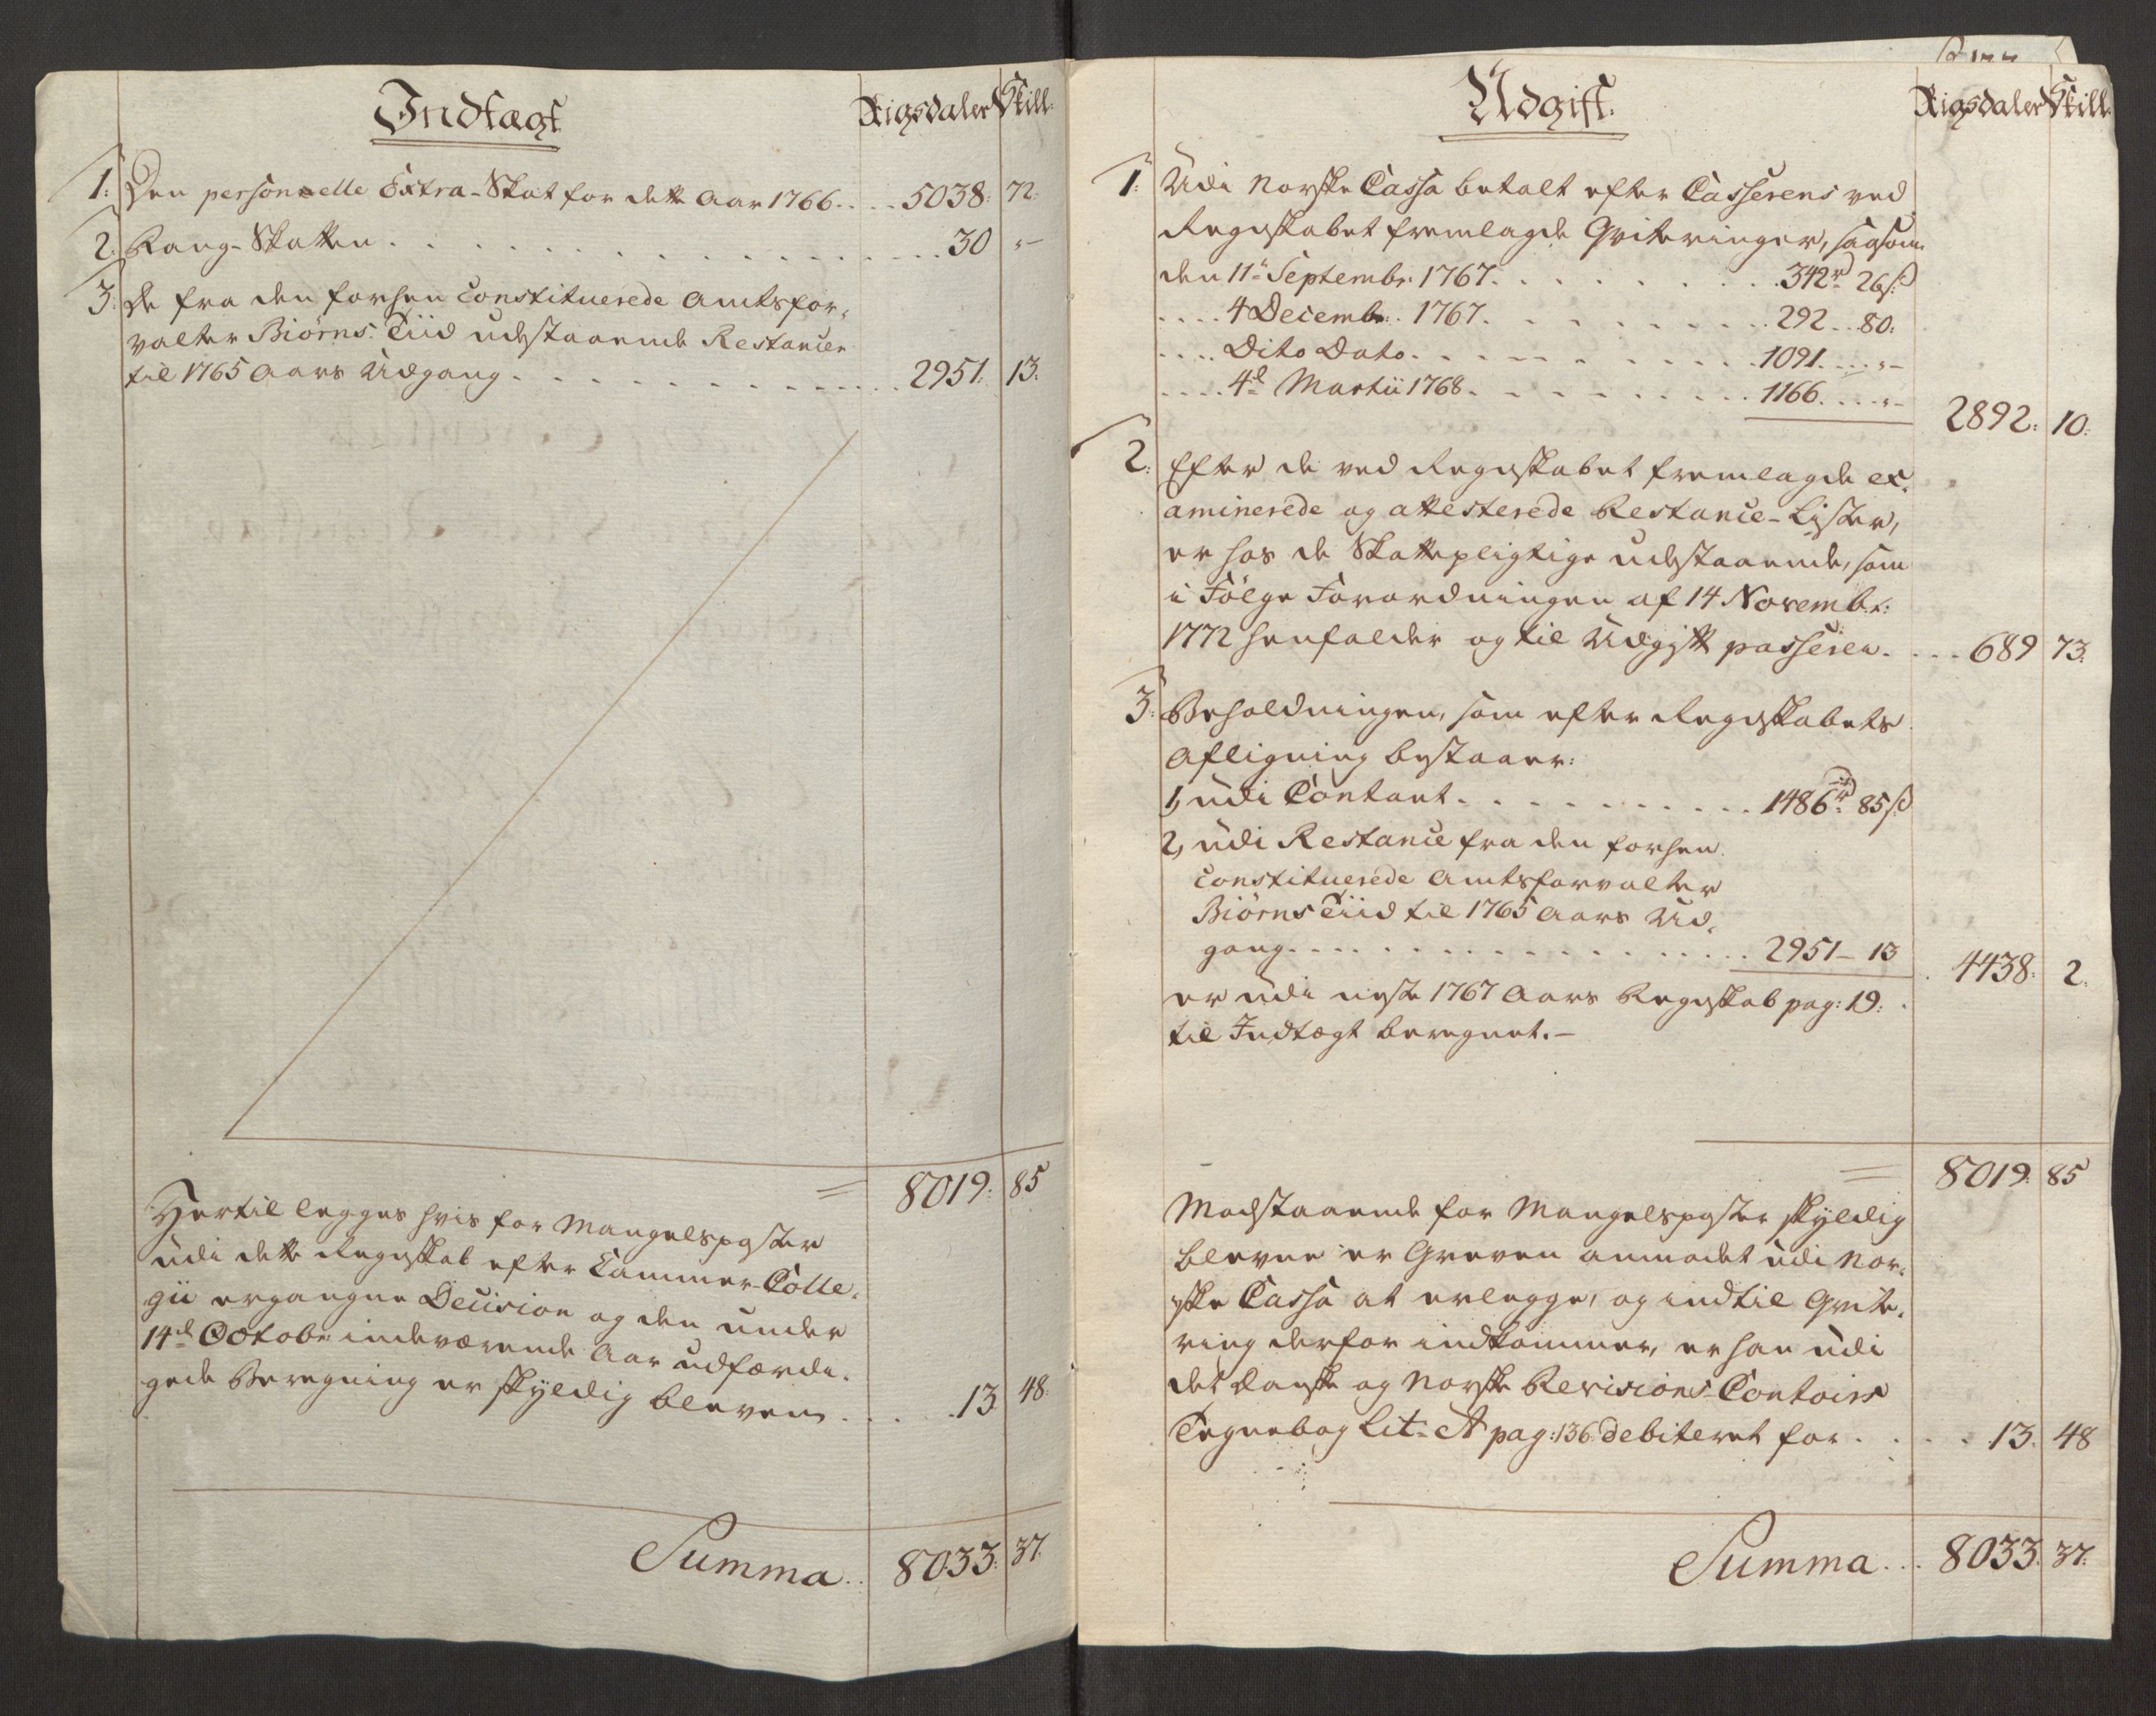 Indtægt
Rigsdaler Skill:
1: Den personelle Extra-Skat for dette Aar 1766. . . . 5038: 72:
2. Rang-Skatten . . . . . . . . . . 30 "-
3: De fra den forhen Constituerede Amtsfor-
valter Biørns Tiid udestaaende Restancer
til 1765 Aars Udgang . . . . . . . . . 2951: 13:
8019: 85
Hertil legges hvis for Mangelsposter
udi dette Regnskab efter Cammer-Colle-
gii ergangne Decision og den under
14d Octobr: indeværende Aar udfærdi-
gede Beregning er skyldig bleven . . . 13 48:
Summa . . 8033: 37.
Udgift.
Rigsdaler Skill:
1: Udi Norske Cassa betalt efter Casserens ved
Regnskabet fremlagde Qviteringer, saasom
den 11te Septembr: 1767. . . . . . . 342rd 26s:
. . . . 4 Decembr: 1767. . . . . . . . 292 . . 80:
. . . . Dito Dato . . . . . . . . 1091 . . . "-
. . . . 4d Martii 1768. . . . . . . . 1166 . . . "-
2892: 10:
2: Efter de ved Regnskabet fremlagde ex-
aminerede og attesterede Restance-Lister,
er hos de Skattepligtige udestaaende, som
i Følge Forordningen af 14 Novembr:
1772 henfalder og til Udgift passerer . . . . 689 73:
3: Beholdningen, som efter Regnskabets
Afligning bestaaer:
1, udi Contant . . . . . . . . . 1486rd 85s
2, udi Restance fra den forhen
Constituerede Amtsforvalter
Biørns Tiid til 1765 Aars Ud-
gang . . . . . . . . . . . 2951 - 13
4438: 2:
er udi neste 1767 Aars Regnskab pag: 19:
til Indtægt beregnet. -
8019: 85
Modstaaende for Mangelsposter skyldig
blevne er Greven anmodet udi Nor-
ske Cassa at erlegge, og indtil Qvite-
ring derfor indkommer, er han udi
det danske og Norske Revisions-Contoirs
Tegnebog Lit: A pag: 136 debiteret for . . . . 13. 48
Summa . . . 8033. 37.